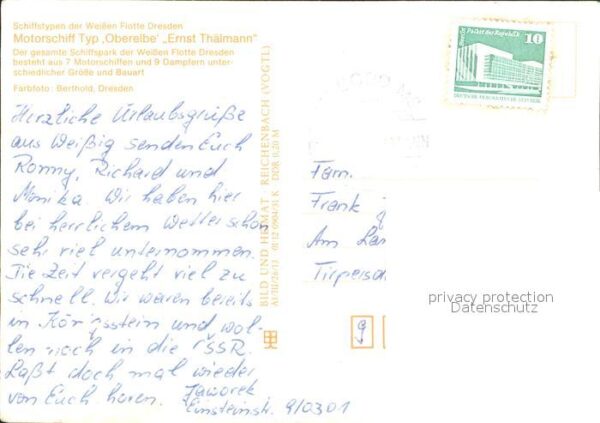 Schiffstypen der Weißen Flotte Dresden
Motorschiff Typ ‚Oberelbe' „Ernst Thälmann"
Der gesamte Schiffspark der Weißen Flotte Dresden
besteht aus 7 Motorschiffen und 9 Dampfern unter-
schiedlicher Größe und Bauart
Farbfoto: Berthold, Dresden
Herzliche Urlaubsgrüße
aus Weißig senden Euch
Ronny, Richard und
Monika. Wir haben hier
bei herrlichem Wetter schon
sehr viel unternommen.
Die Zeit vergeht viel zu
schnell. Wir waren bereits
in Königsstein und wol-
len noch in die ČSSR.
Laßt doch mal wieder
von Euch hören. Jaworek
Einsteinstr. 9/0301
BILD UND HEIMAT REICHENBACH (VOGTL)
A1/III/26/13 01 12 0904/31 K DDR 0,20 M
Palast der Republik
10
DEUTSCHE DEMOKRATISCHE REPUBLIK
Fam.
Frank
Am
Tirpersd
9
privacy protection
Datenschutz